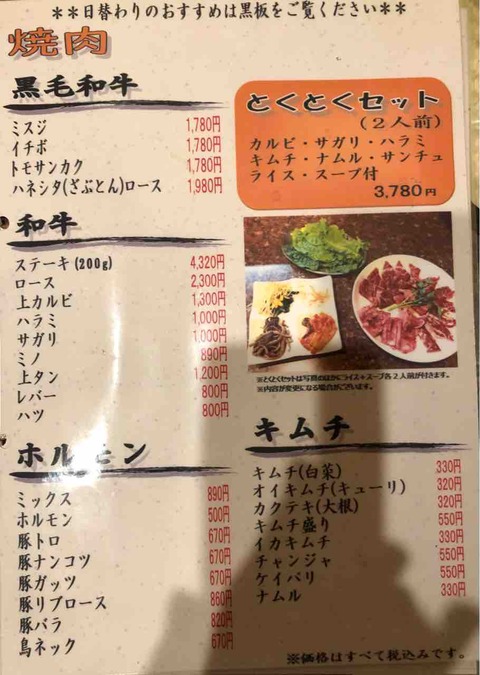 **日替わりのおすすめは黒板をご覧ください**
焼肉
黒毛和牛
ミスジ 1,780円
イチボ 1,780円
トモサンカク 1,780円
ハネシタ(ざぶとん)ロース 1,980円
とくとくセット
(2人前)
カルビ・サガリ・ハラミ
キムチ・ナムル・サンチュ
ライス・スープ付
3,780円
※とくとくセットは写真のほかにライス+スープ各2人前が付きます。
※内容が変更になる場合がございます。
和牛
ステーキ(200g) 4,320円
ロース 2,300円
上カルビ 1,300円
ハラミ 1,000円
サガリ 1,000円
ミノ 890円
上タン 1,200円
レバー 800円
ハツ 800円
ホルモン
ミックス 890円
ホルモン 500円
豚トロ 670円
豚ナンコツ 670円
豚ガッツ 670円
豚リブロース 860円
豚バラ 820円
鳥ネック 670円
キムチ
キムチ(白菜) 330円
オイキムチ(キューリ) 320円
カクテキ(大根) 320円
キムチ盛り 550円
イカキムチ 330円
チャンジャ 550円
ケイパリ 550円
ナムル 330円
※価格はすべて税込みです。